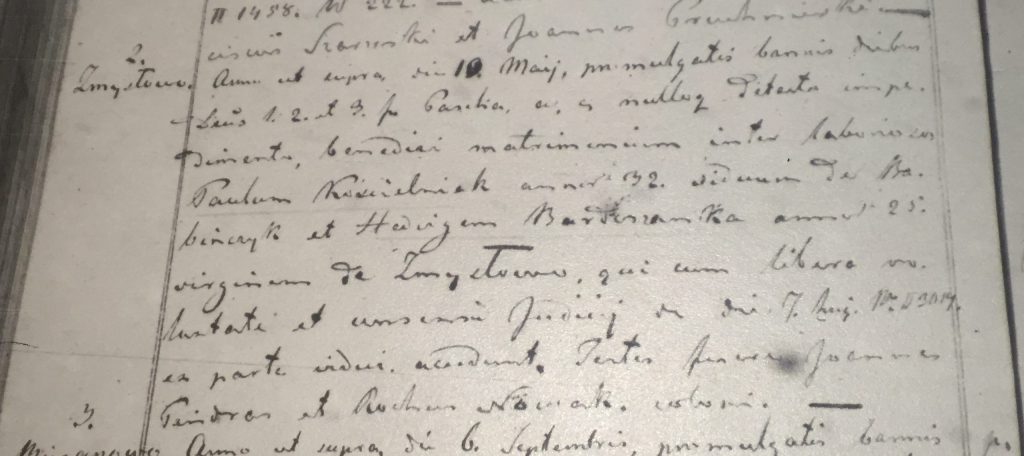 1458. N 222. —
Szarzewski et Joannes
2.
Zmysłowo. Anno ut supra, die 10. Maij, promulgatis bannis diebus
1. 2. et 3. p Pascha, a, nulloq detecto impe-
dimento, benedixi matrimonium inter laboriosos
Paulum Kościelniak annor 32. viduum de Ba-
binczyk et Hedvigem annor 25.
virginem de Zmysłowo, qui cum libera vo-
luntate et consensu Judicij de die 7. Aug. Nr II 3017.
ex parte vidui, accedunt. Testes fuere Joannes
et Rochus Nowak. coloni. —
3.
Anno ut supra, die 6. Septembris, promulgatis bannis